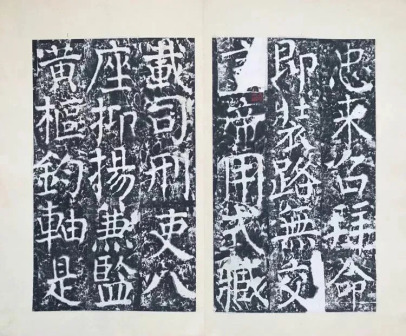 忠来召拜命
即裝路無交
言帝用式臧
載司刑吏八
座抑揚兼監
黃樞鈞軸是